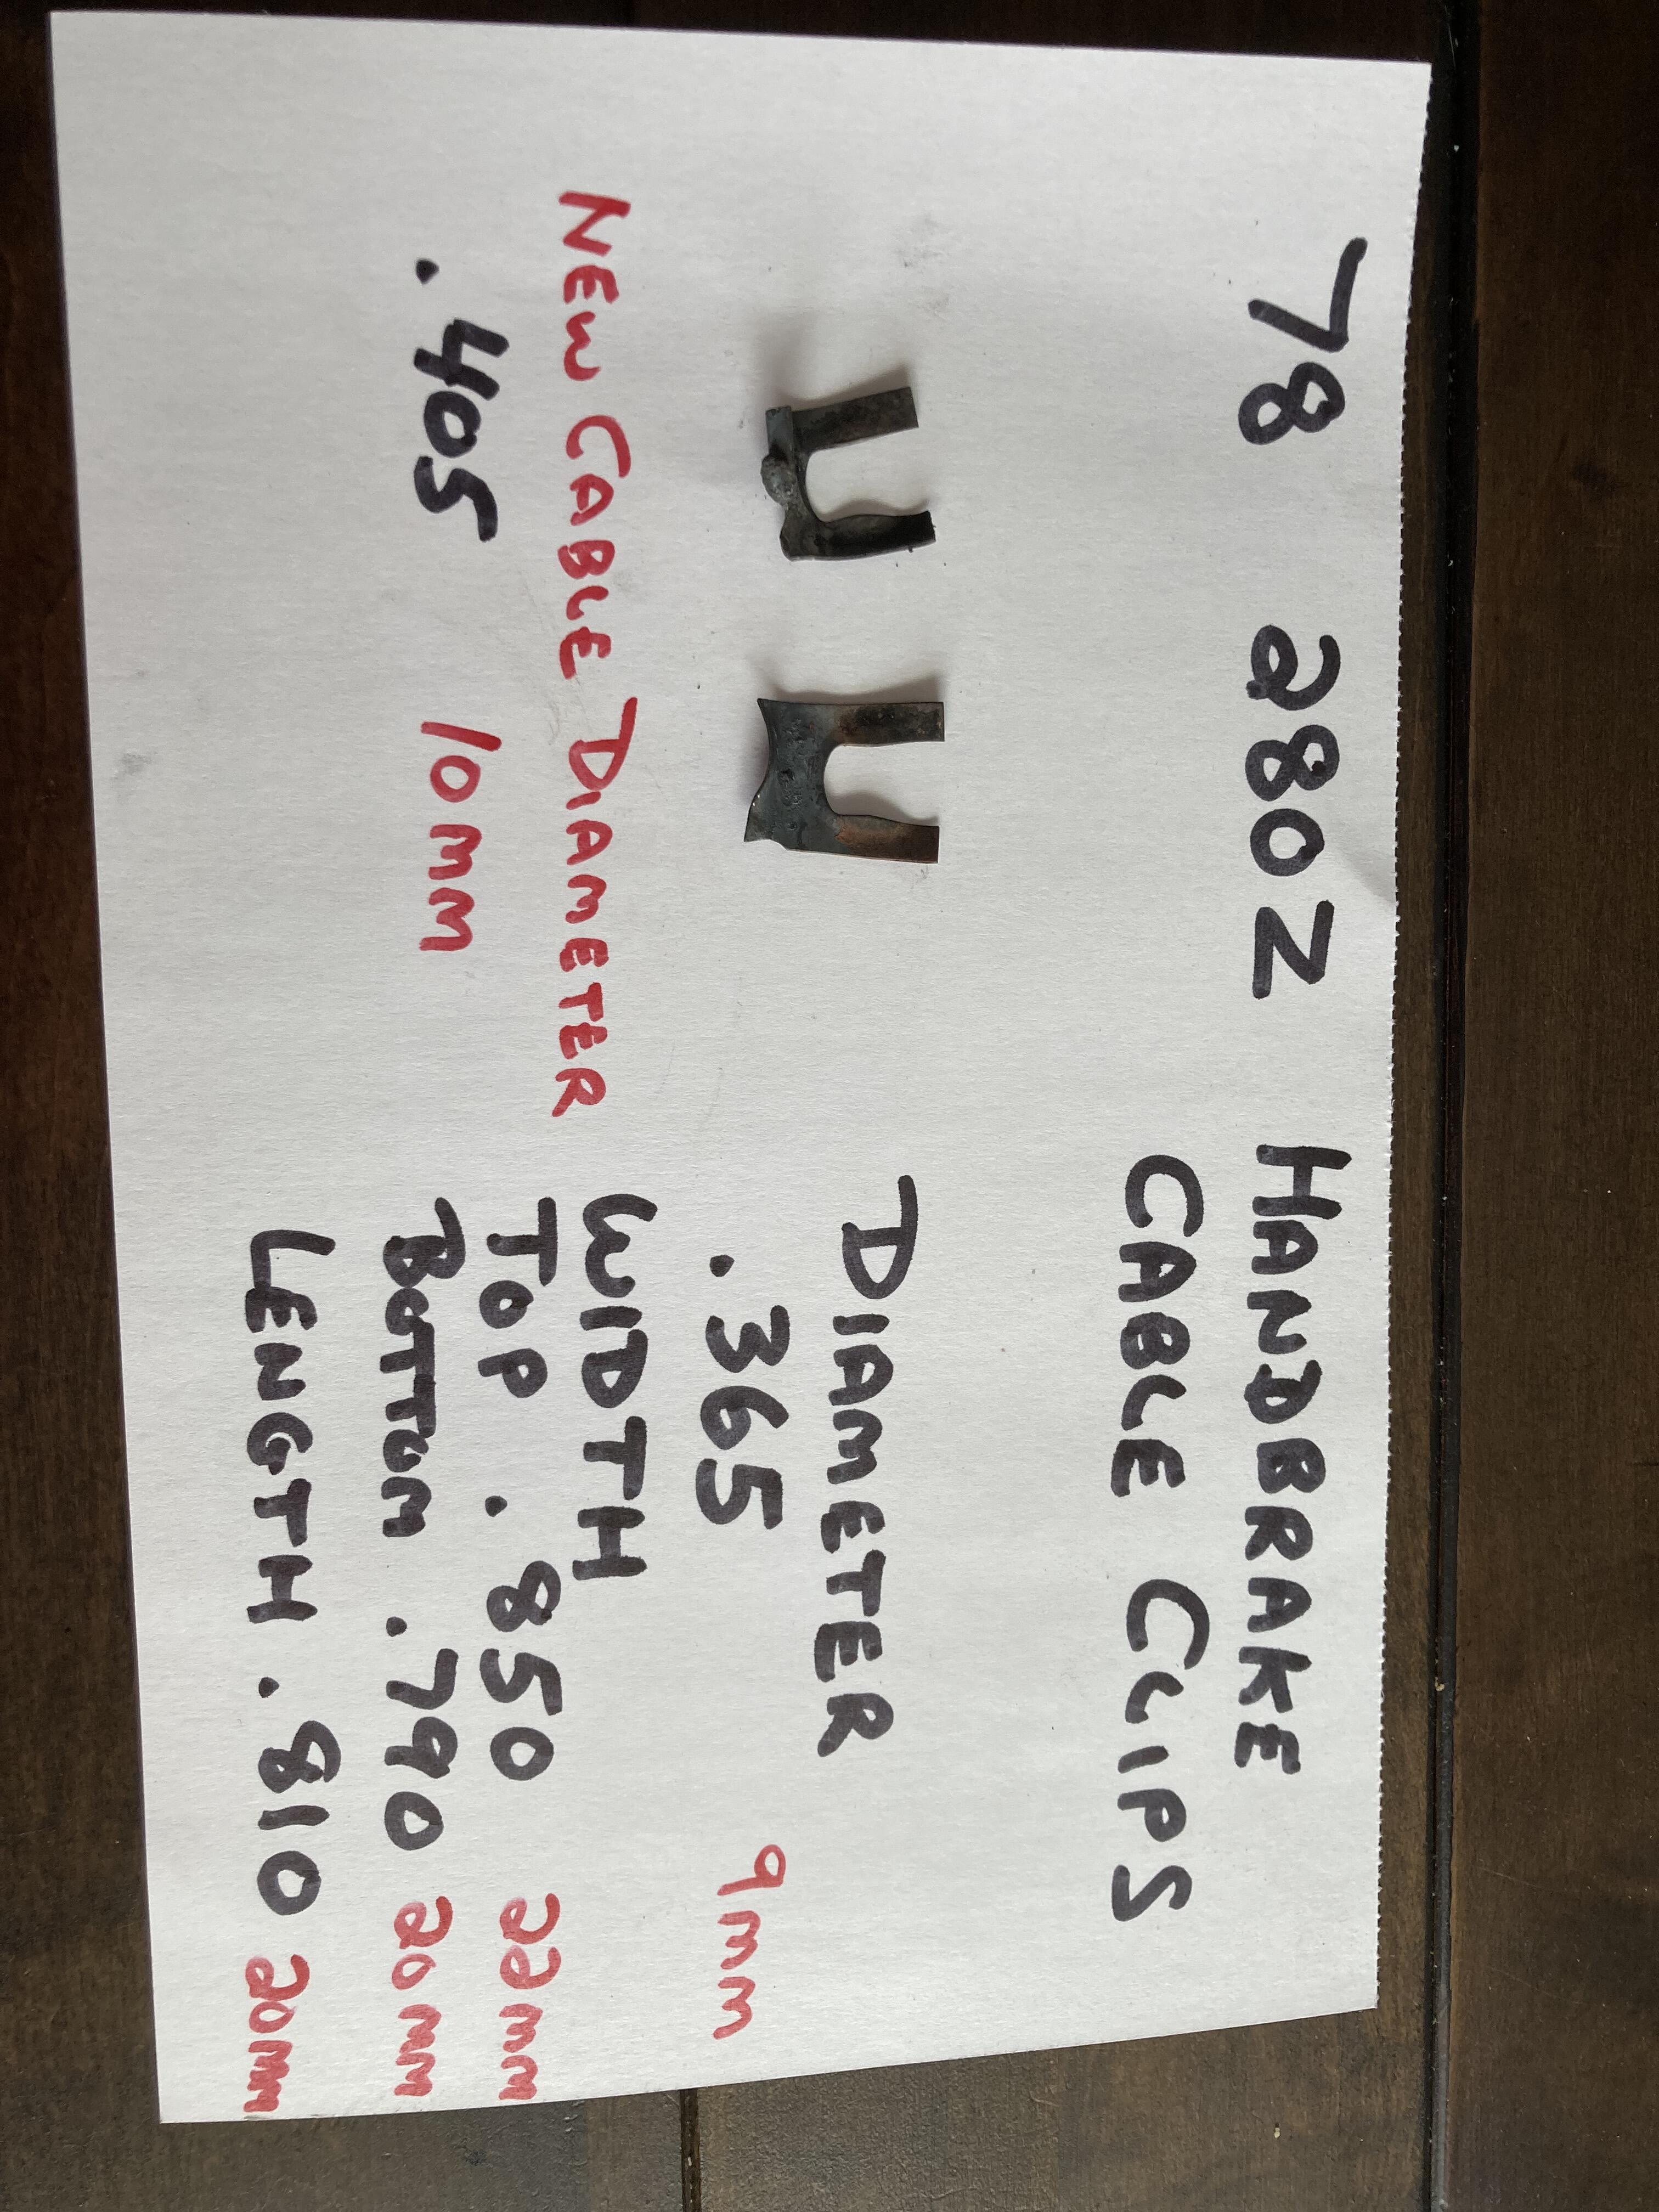 78 280Z HANDBRAKE
CABLE CLIPS
DIAMETER
.365 9mm
WIDTH
TOP .850 22mm
BOTTUM .790 20mm
LENGTH .810 20mm
NEW CABLE DIAMETER
.405 10mm